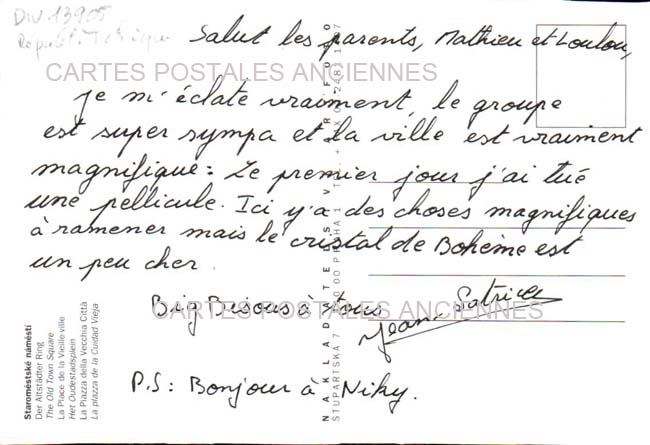 DIV. 13905
Républ. Tchèque
Salut les parents, Mathieu et Loulou,
CARTES POSTALES ANCIENNES
je m'éclate vraiment, le groupe
est super sympa et la ville est vraiment
magnifique : Le premier jour j'ai tué
une pellicule. Ici y'a des choses magnifiques
à ramener mais le cristal de Bohème est
un peu cher.
Big Bisous à vous
CARTES POSTALES ANCIENNES
P.S : Bonjour à Niky.
Staroměstské náměstí
Der Altstädter Ring
The Old Town Square
La Place de la Vieille ville
Het Oudestadsplein
La Piazza della Vecchia Città
La plazza de la Cuidad Vieja
NAKLADATELSTVÍ
STUPARTSKÁ 7
PRAHA 1